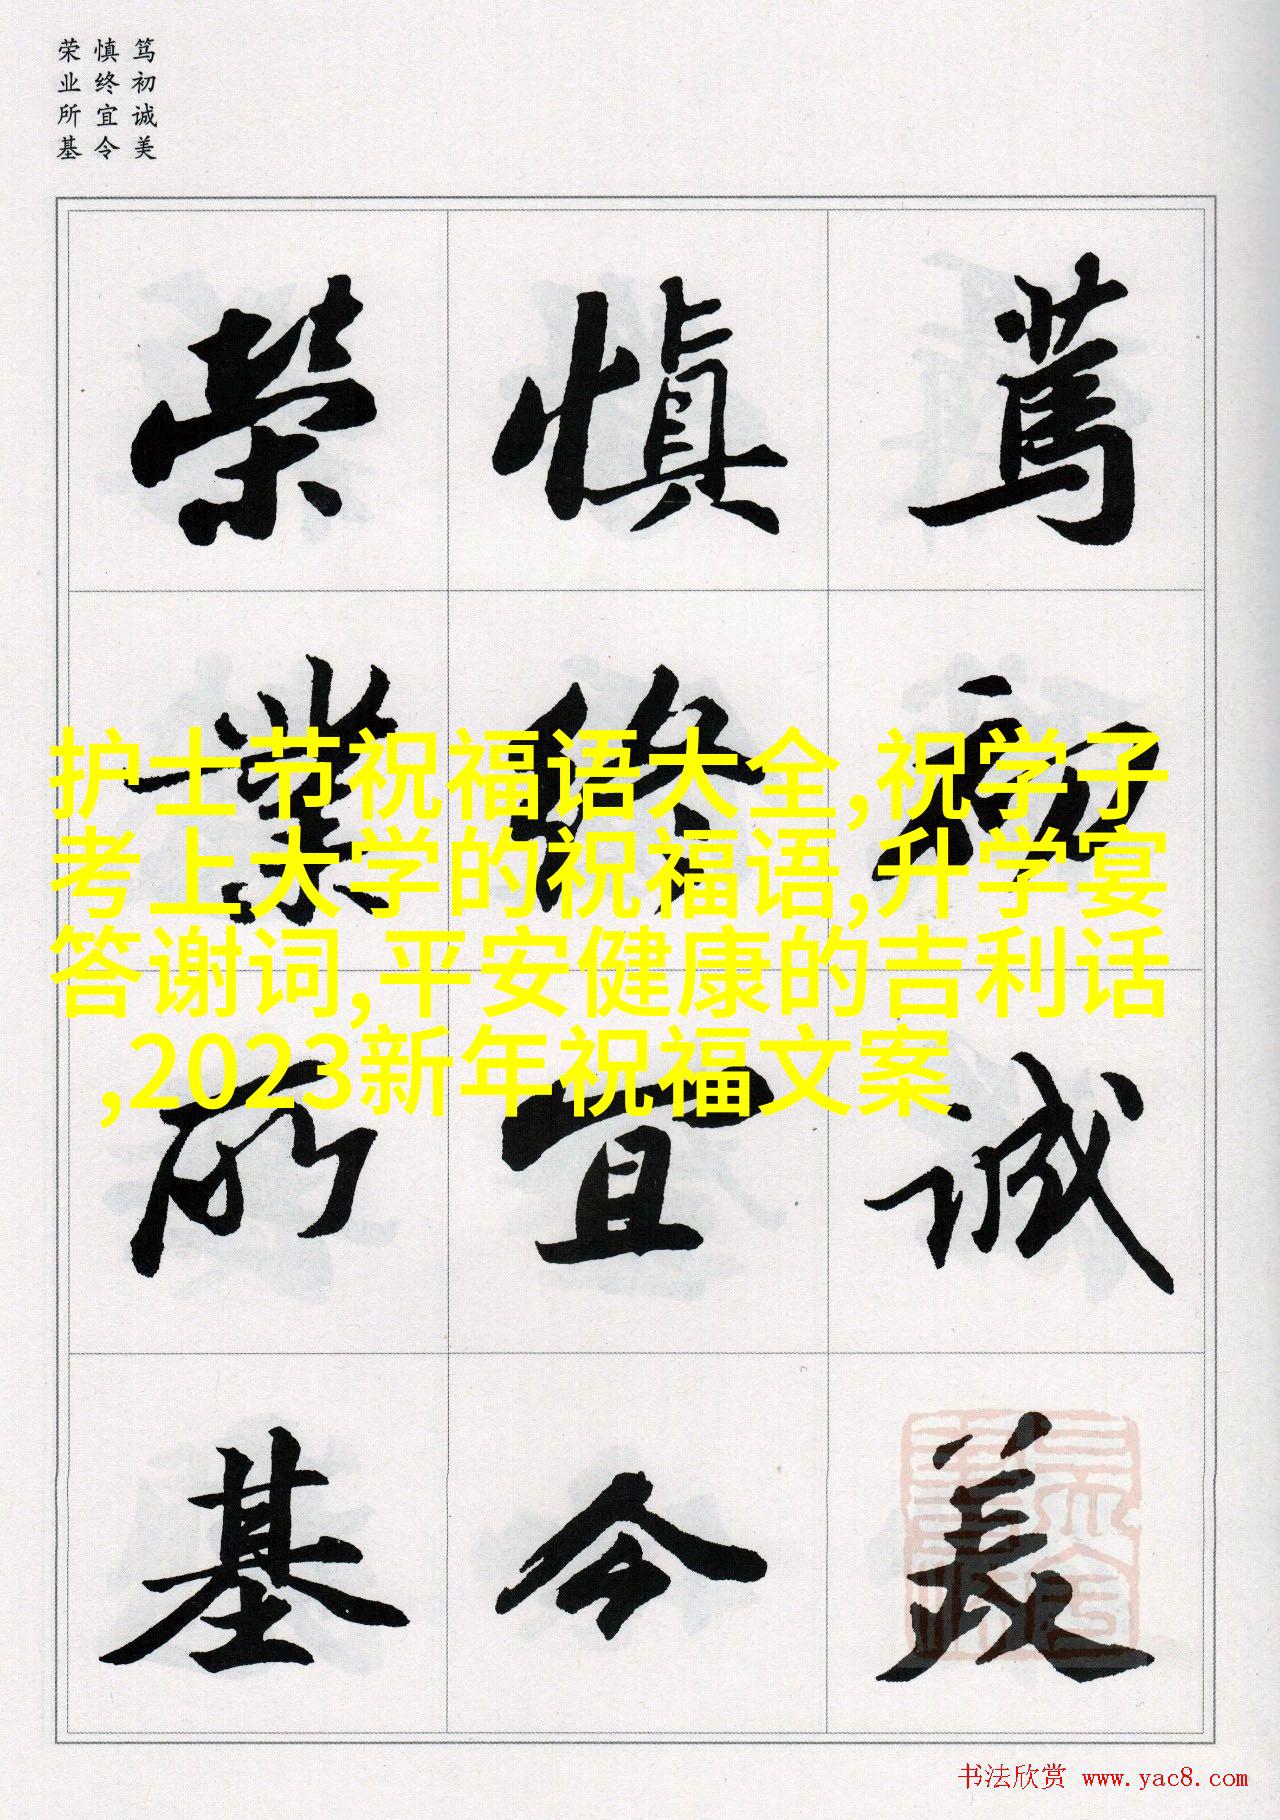 笃初诚美
慎终宜令
荣业所基
篤初誠美
慎終宜令
榮業所基
护士节祝福语大全,祝学子
考上大学的祝福语,升学宴
答谢词,平安健康的吉利话
,2023新年祝福文案
书法欣赏 www.yac8.com